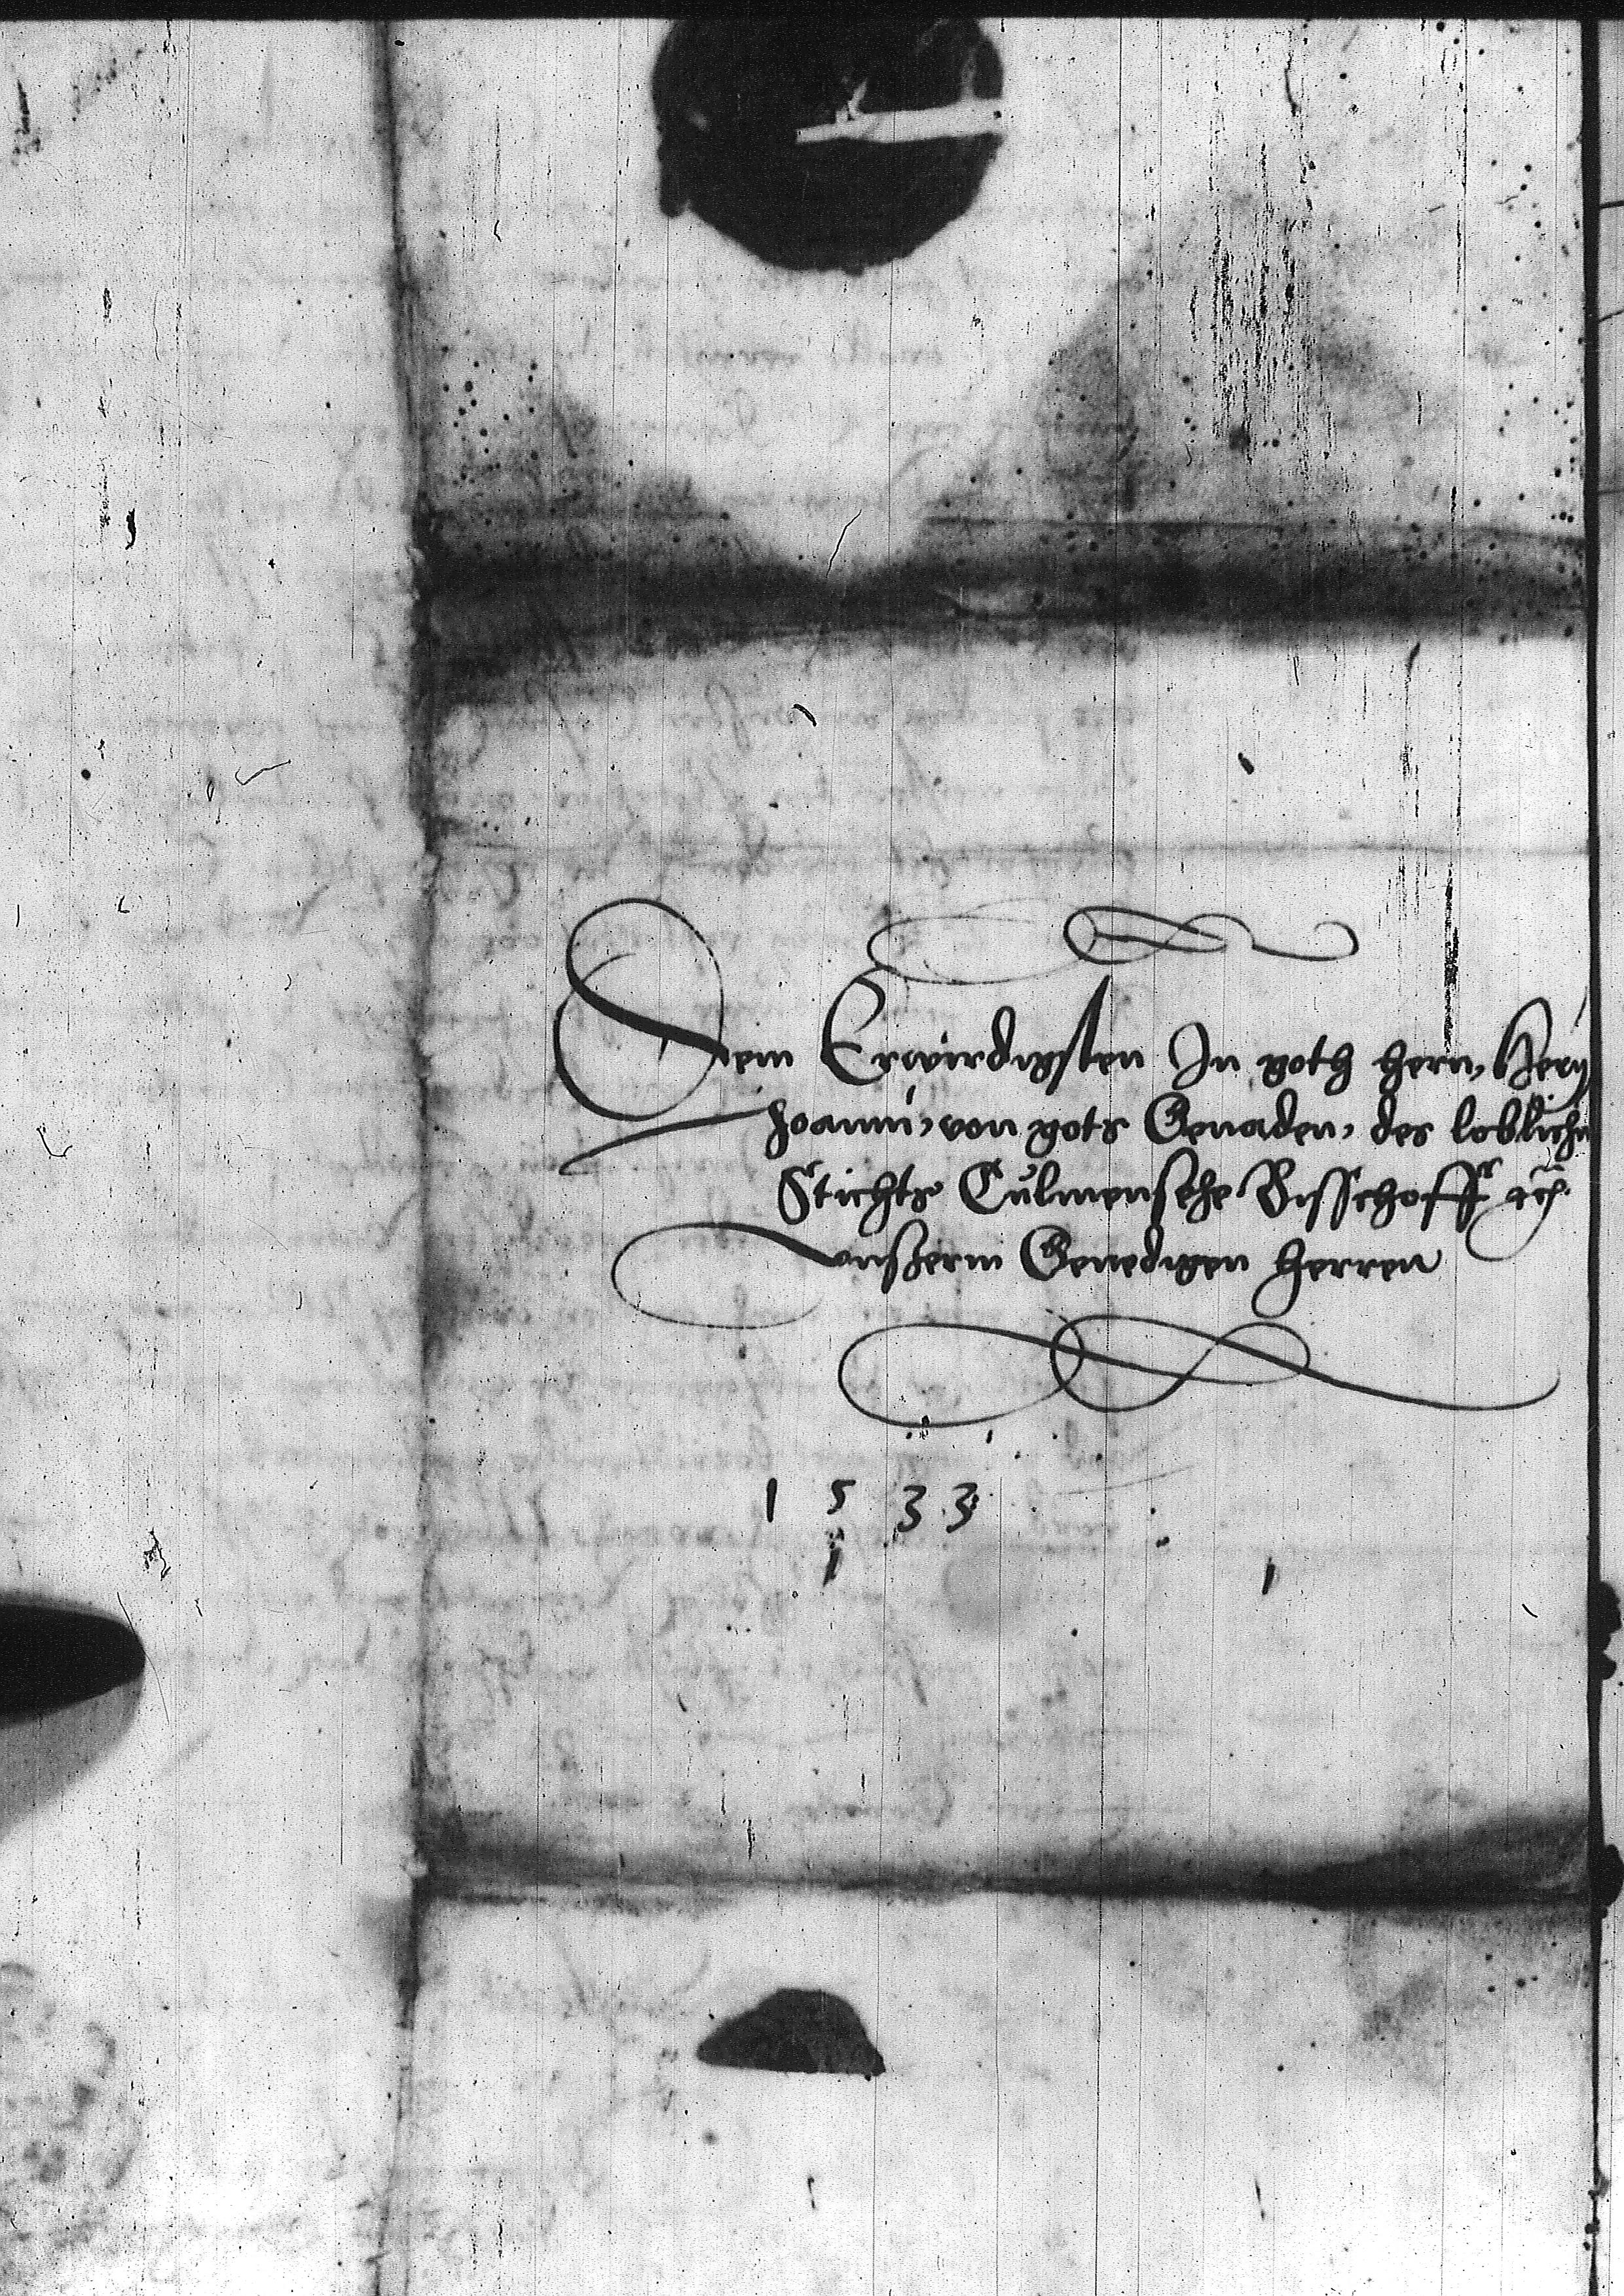 Dem Erwirdigsten In goth hern, Hern
Joanni, von gots Genaden, des loblichn
Stichts Culmensehe Bisschoff etc.
vnßerm Genedigen herren
1 5 3 3